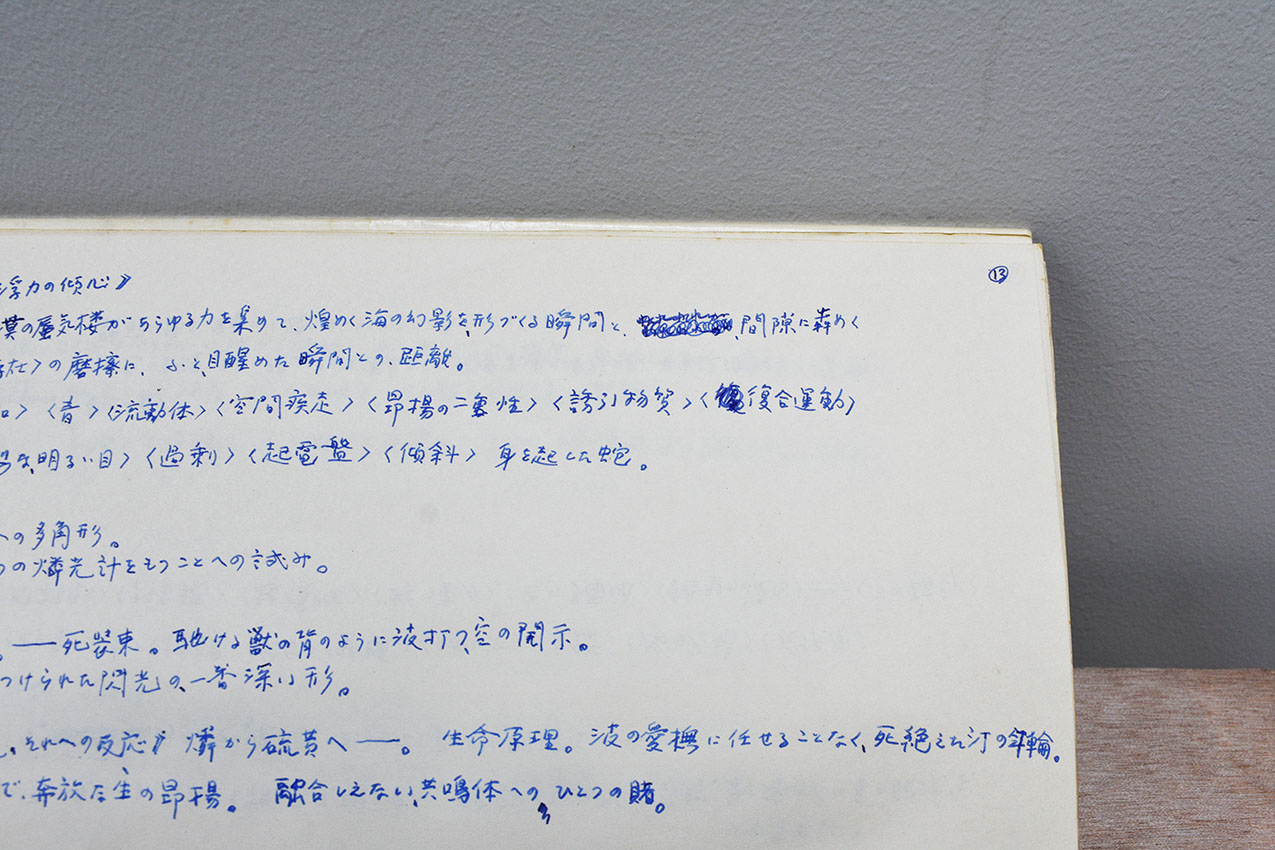 ⑬
浮力の傾心》
漠の蜃気楼があらゆる力を集めて、煌めく海の幻影を、形づくる瞬間と、間隙に犇めく
社〉の磨擦に、ふと、目醒めた瞬間との、距離。
〉〈青〉〈流動体〉〈空間疾走〉〈昂揚の二重性〉〈誘引物質〉〈復合運動〉
な、明るい目〉〈過剰〉〈起電盤〉〈傾斜〉 身を起した蛇。
への多角形。
つの燐光計をもつことへの試み。
。――死装束。駆ける獣の背のように波打つ、空の開示。
つけられた閃光の、一番深い形。
、それへの反応》 燐から硫黄へ――。 生命原理。波の愛撫に任せることなく、死絶えた汀の年輪。
で、奔放な生の昂揚。 融合しえない、共鳴体への、ひとつの賭。